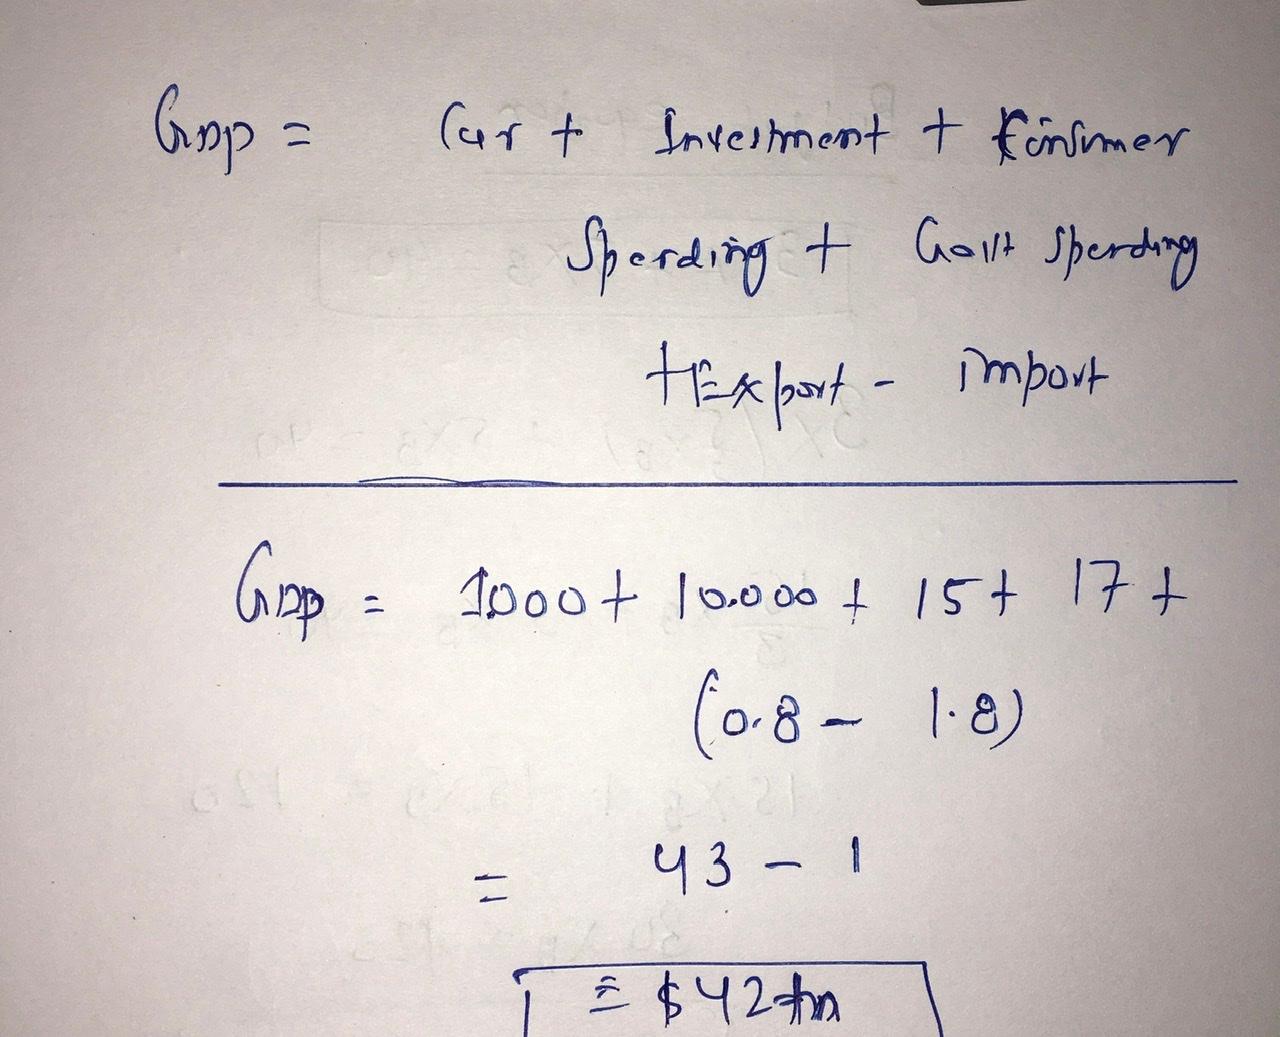 GDP = Car + Investment + Consumer
Spending + Govt spending
+ Export - import
GDP = 1000 + 10.000 + 15 + 17 +
(0.8 - 1.8)
= 43 - 1
= $42tn